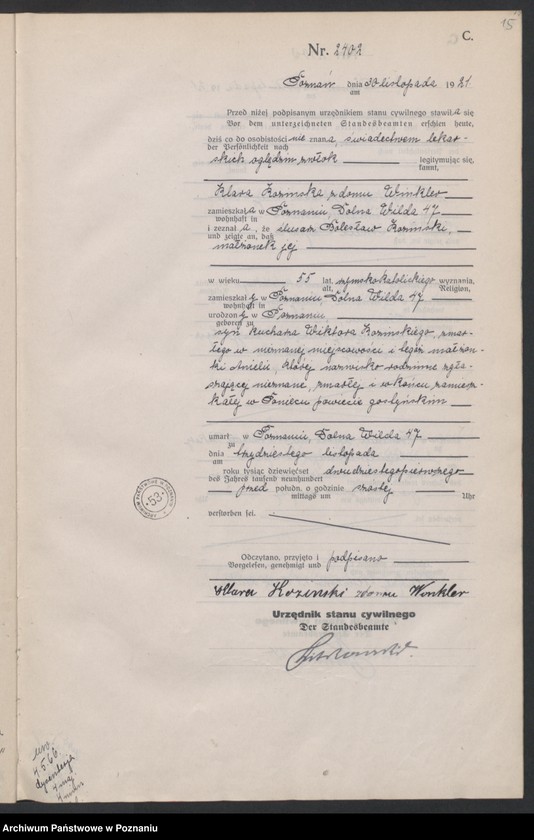 15
C.
Nr. 2702
Poznań dnia 30 listopada 1921
am
Przed niżej podpisanym urzędnikiem stanu cywilnego stawiła się
Vor dem unterzeichneten Standesbeamten erschien heute,
dziś co do osobistości nie znana, świadectwem lekar-
der Persönlichkeit nach
skich oględzin zwłok legitymując się,
kannt,
Klara Kozinska, z domu Winkler
zamieszkała w Poznaniu, Dolna Wilda 47
wohnhaft in
i zeznała, że ślusarz Bolesław Kozinski,
und zeigte an, daß
małżonek jej
w wieku 55 lat, rzymskokatolickiego wyznania,
alt, Religion,
zamieszkały w Poznaniu Dolna Wilda 47
wohnhaft in
urodzony w Poznaniu,
geboren zu
syn kucharza Wiktora Kozinskiego, zmar-
łego w nieznanej miejscowości i tegoż małżon-
ki Anieli, której nazwisko rodzinne zgła-
szającej nieznane, zmarłej i w końcu zamiesz-
kałej w Poniecu powiecie gostyńskim
umarł w Poznaniu, Dolna Wilda 47
zu
dnia trzydziestego listopada
am
roku tysiąc dziewięćset dwudziestegopierwszego
des Jahres tausend neunhundert
przed połudn. o godzinie szóstej
mittags um Uhr
verstorben sei.
Odczytano, przyjęto i podpisano
Vorgelesen, genehmigt und
Klara Kozinski zdomu Winkler
Urzędnik stanu cywilnego
Der Standesbeamte
53
4.5.66
Archiwum Państwowe w Poznaniu